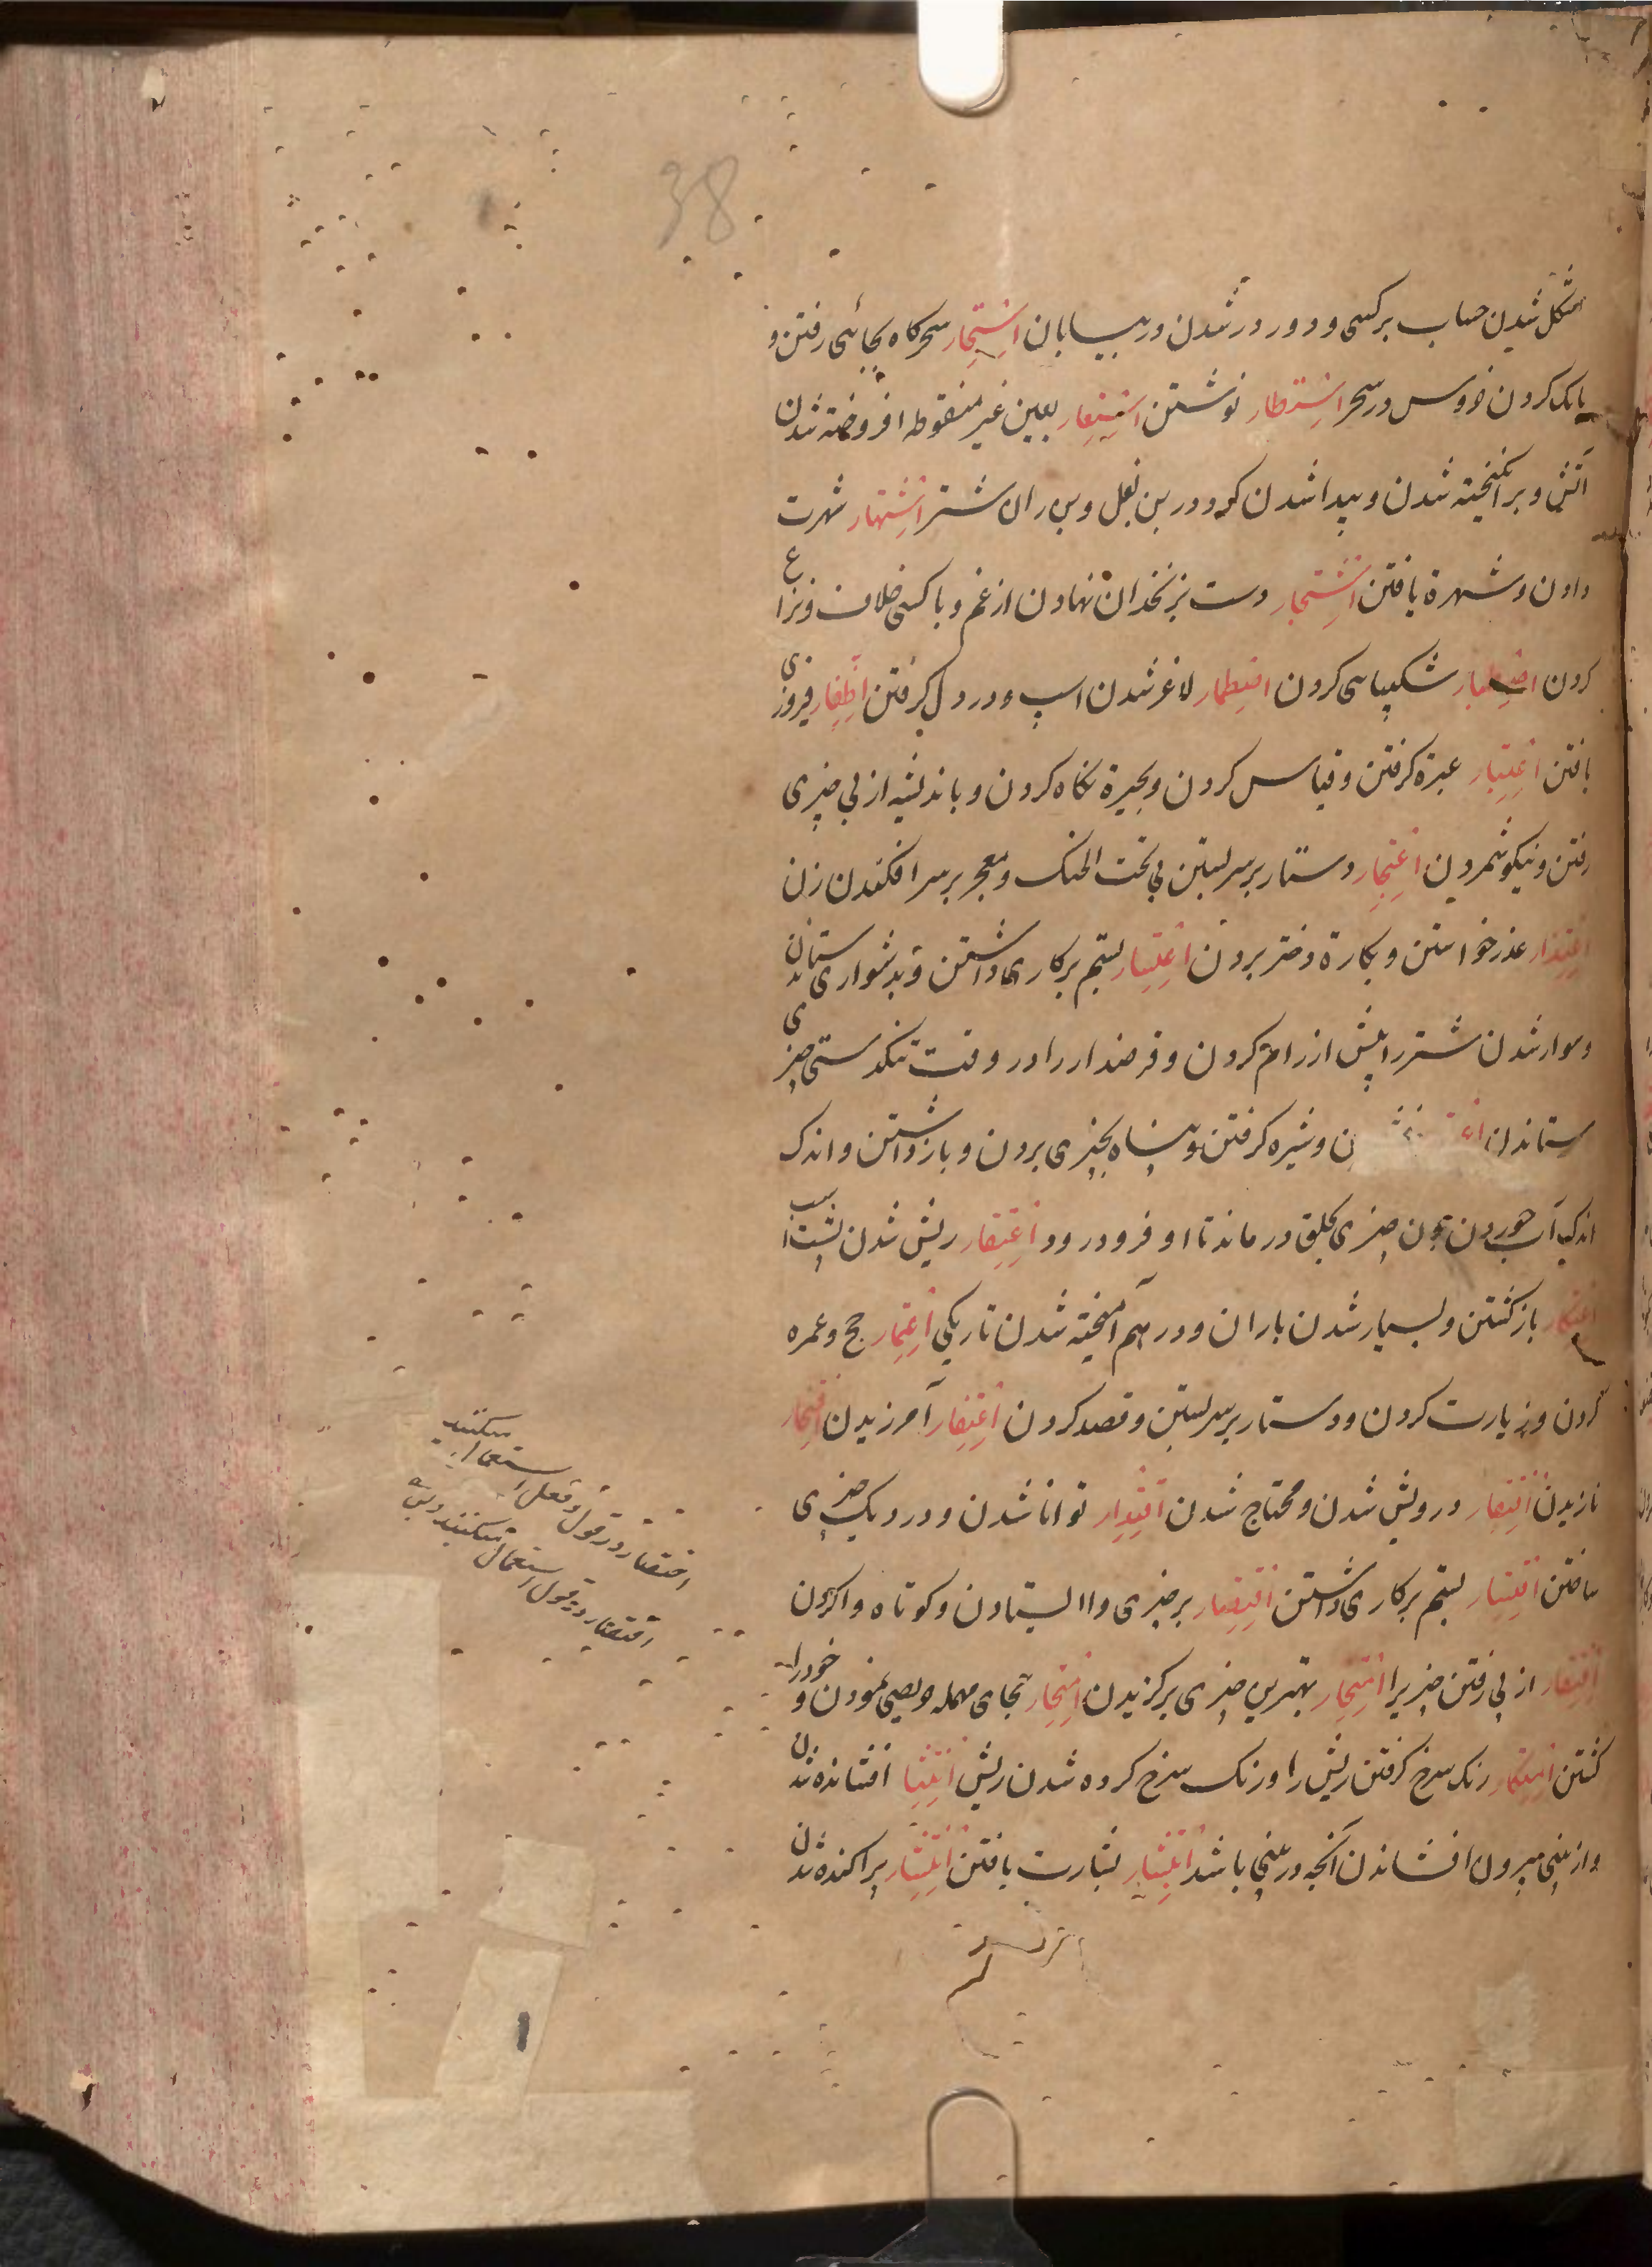 38
مشکل شدن حساب بر کسی و دور در شدن در بیابان استحار سحرکاه بجائی رفتن و
بانک کردن خروس در سحر استطار نوشتن استعار بعین غیر منقوطه افروخته شدن
آتش و بر انکیخته شدن و پیدا شدن کر و در بن بغل و بن ران شتر اشتهار شهرت
دادن و شهرة یافتن اشتجار دست بزنخدان نهادن از غم و با کسی خلاف و نزاع
کردن اصطبار شکیبایی کردن اضطمار لاغر شدن اسپ و در دل کرفتن اظفار فیروزی
یافتن اعتبار عبرة کرفتن و قیاس کردن و بحیرة نکاه کردن و باندیشه از پی چیزی
رفتن و نیکو شمردن اعتجار دستار بر سر بستن بی تحت الحنک و معجر بر سر افکندن زن
اعتذار عذر خواستن و بکارة دختر بردن اعتسار بستم بر کاری داشتن و بدشواری ستاندن
و سوار شدن شتر را پیش از رام کردن و قرضدار را در وقت تنکدستی چیزی
ستاندن ن و شیره کرفتن و پناه بچیزی بردن و باز داشتن و اندک
اندک آب خوردن چون چیزی بحلق در ماند تا او فرو در رود اعتقار ریش شدن پشت اسب
اعتکار باز کشتن و بسیار شدن باران و در هم آمیخته شدن تاریکی اعتمار حج و عمره
کردن و زیارت کردن و دستار بر سر بستن و قصد کردن اغتفار آمرزیدن افتخار
نازیدن افتقار درویش شدن و محتاج شدن اقتدار توانا شدن و در دیک چیزی
ساختن اقتسار بستم بر کاری داشتن اقتصار بر چیزی وا ایستادن و کوتاه وا کردن
اقتفار از پی رفتن چیزیرا امتخار بهترین چیزی برکزیدن انتحار بحای مهمله وصی نمودن و خود را
کشتن امتکار رنک سرخ کرفتن ریش را و رنک سرخ کرده شدن ریش انتثار افشانده شدن
و از بینی بیرون افشاندن آنچه در بینی باشد ابتشار بشارت یافتن انتشار پراکنده شدن
اختصار در قول و فعل استعمال میکنند
اقتصار در قول استعمال میکنند و بس